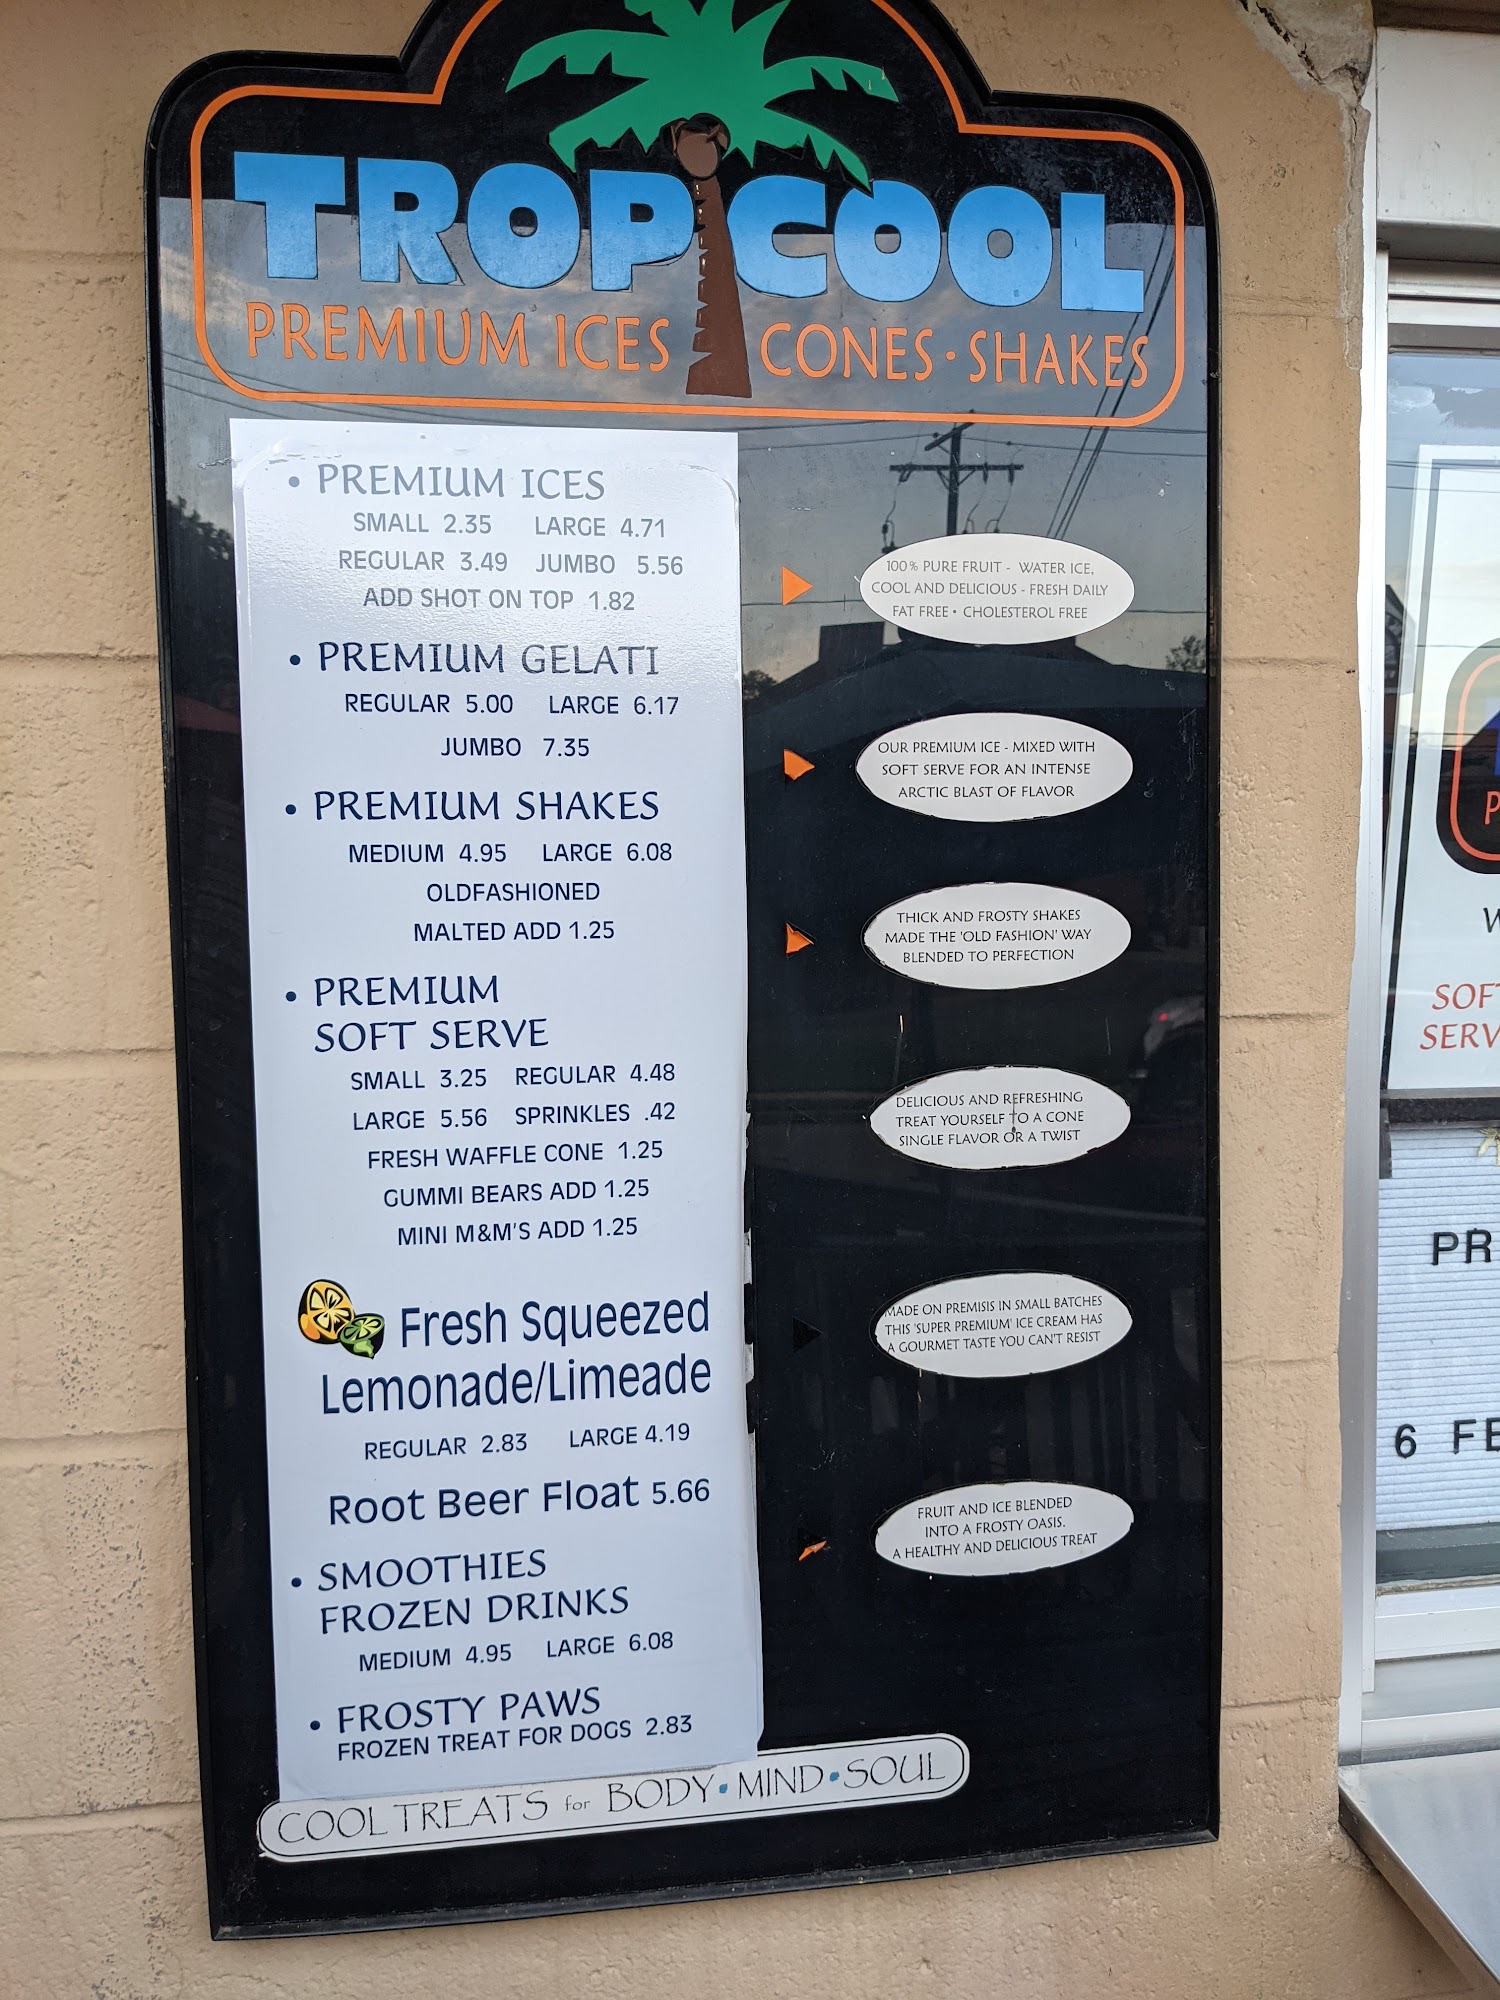 TROP COOL
PREMIUM ICES CONES • SHAKES
• PREMIUM ICES
SMALL 2.35 LARGE 4.71
REGULAR 3.49 JUMBO 5.56
ADD SHOT ON TOP 1.82
• PREMIUM GELATI
REGULAR 5.00 LARGE 6.17
JUMBO 7.35
• PREMIUM SHAKES
MEDIUM 4.95 LARGE 6.08
OLDFASHIONED
MALTED ADD 1.25
• PREMIUM
SOFT SERVE
SMALL 3.25 REGULAR 4.48
LARGE 5.56 SPRINKLES .42
FRESH WAFFLE CONE 1.25
GUMMI BEARS ADD 1.25
MINI M&M'S ADD 1.25
Fresh Squeezed
Lemonade/Limeade
REGULAR 2.83 LARGE 4.19
Root Beer Float 5.66
• SMOOTHIES
FROZEN DRINKS
MEDIUM 4.95 LARGE 6.08
• FROSTY PAWS
FROZEN TREAT FOR DOGS 2.83
COOL TREATS for BODY • MIND • SOUL
100% PURE FRUIT - WATER ICE,
COOL AND DELICIOUS - FRESH DAILY
FAT FREE • CHOLESTEROL FREE
OUR PREMIUM ICE - MIXED WITH
SOFT SERVE FOR AN INTENSE
ARCTIC BLAST OF FLAVOR
THICK AND FROSTY SHAKES
MADE THE 'OLD FASHION' WAY
BLENDED TO PERFECTION
DELICIOUS AND REFRESHING
TREAT YOURSELF TO A CONE
SINGLE FLAVOR OR A TWIST
MADE ON PREMISIS IN SMALL BATCHES
THIS 'SUPER PREMIUM' ICE CREAM HAS
A GOURMET TASTE YOU CAN'T RESIST
FRUIT AND ICE BLENDED
INTO A FROSTY OASIS.
A HEALTHY AND DELICIOUS TREAT
SOFT
SERV
PR
6 FE